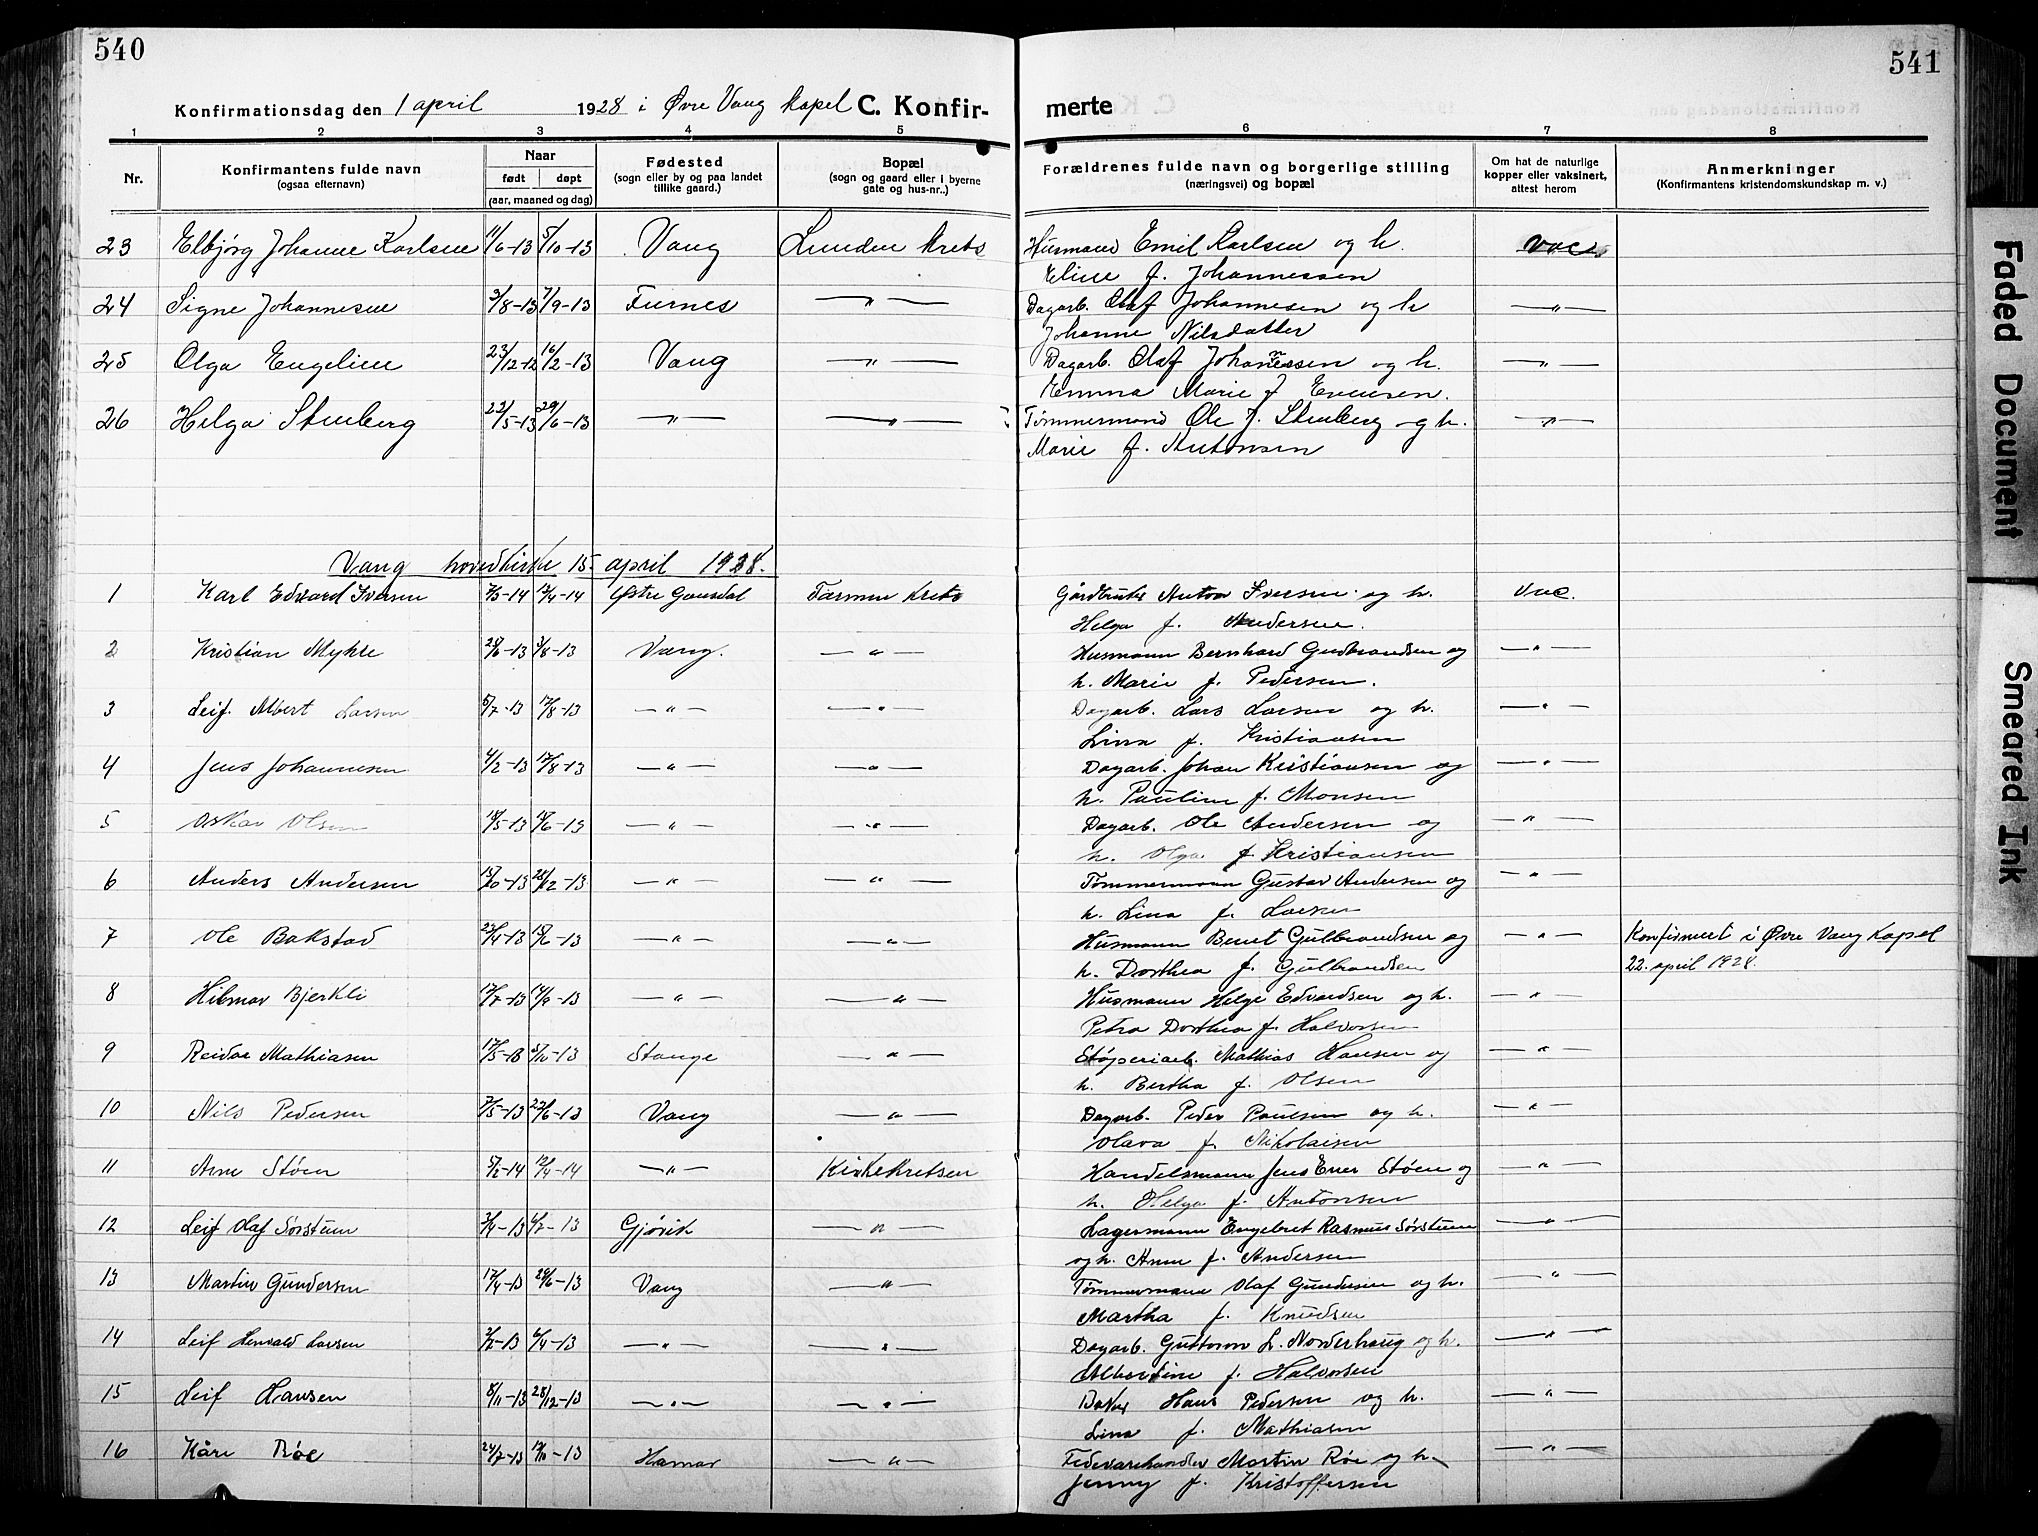 540
541
Konfirmationsdag den 1 april 1928 i Øvre Vang kapel C. Konfir-
merte
1 2 3 4 5 6 7 8
Nr.
Konfirmantens fulde navn
(ogsaa efternavn)
Naar
født døpt
(aar, maaned og dag)
Fødested
(sogn eller by og paa landet
tillike gaard.)
Bopæl
(sogn og gaard eller i byerne
gate og hus-nr..)
Forældrenes fulde navn og borgerlige stilling
(næringsvei) og bopæl
Om hat de naturlige
kopper eller vaksinert,
attest herom
Anmerkninger
(Konfirmantens kristendomskundskap m. v.)
23 Elbjörg Johanne Karlsen 11/6-13 5/10-13 Vang Lunden krets Husmand Emil Karlsen og h. vac.
Eline f. Johannessen
24 Signe Johannesen 3/8-13 7/9-13 Furnes —"— Dagarb. Olaf Johannesen og h —"—
Johanne Nilsdatter
25 Olga Engeline 23/12-12 16/2-13 Vang —"— Dagarb. Olaf Johannessen og h. —"—
Emma Marie f Evensen.
26 Helga Stenberg 22/5-13 29/6-13 —"— —"— Tømmermand Ole J. Stenberg og h. —"—
Marie f. Antonsen
Vang hovedkirke 15 april 1928.
1 Karl Edvard Iversen 7/3-14 12/4-14 Østre Gausdal Farmen krets Gårdbruker Anton Iversen og h. vac.
Helga f. Andersen.
2 Kristian Myhre 28/6-13 3/8-13 Vang. —"— Husmann Bernhard Gudbrandsen og —"—
h. Marie f. Pedersen.
3 Leif Albert Larsen 5/7-13 17/8-13 —"— —"— Dagarb. Lars Larsen og h. —"—
Lina f. Kristiansen
4 Jens Johannesen 4/2-13 17/8-13 —"— —"— Dagarb. Johan Kristiansen og —"—
h. Pauline f. Monsen
5 Oskar Olsen 18/5-13 /6-13 —"— —"— Dagarb. Ole Andersen og —"—
h. Olga f Kristiansen
6 Anders Andersen 15/10-13 28/12-13 —"— —"— Tømmermann Gustav Andersen og —"—
h. Lina f. Larsen
7 Ole Bakstad 22/4-13 15/6-13 —"— —"— Husmann Bernt Gulbrandsen og —"— Konfirmert i Øvre Vang Kapel
h. Dorthea f. Gulbrandsen 22. april 1928.
8 Hilmar Bjerkli 17/7-13 14/9-13 —"— —"— Husmann Helge Edvardsen og h. —"—
Petra Dorthea f. Halvorsen
9 Reidar Mathiasen 17/5-13 -13 Stange —"— Støperiarb. Mathias Hansen og —"—
h. Bertha f. Olsen
10 Nils Pedersen 7/5-13 22/6-13 Vang —"— Dagarb. Peder Paulsen og h. —"—
Olava f. Nikolaisen
11 Arne Støen 5/2-14 12/4-14 —"— Kirkekretsen Handelsmann Jens Ener Støen og —"—
h. Helga f. Antonsen
12 Leif Olaf Sørstuen -13 -13 Gjøvik —"— Lagermann Engebret Rasmus Sørstuen —"—
og h. Anna f. Andersen
13 Martin Gundersen 17/4-13 29/6-13 Vang —"— Tømmermann Olaf Gundersen og h. —"—
Martha f. Knudsen
14 Leif Larsen 2/2-13 6/4-13 —"— —"— Dagarb. L. Norderhaug og h. —"—
Albertine f. Halvorsen
15 Leif Hansen 8/11-13 28/12-13 —"— —"— Baker Hans Pedersen og h. —"—
Lina f. Mathiasen
16 Kåre Røe 24/7-13 -13 Hamar —"— Fedevarehandler Martin Røe og h. —"—
Jenny f. Kristoffersen
Faded Document
Smeared Ink